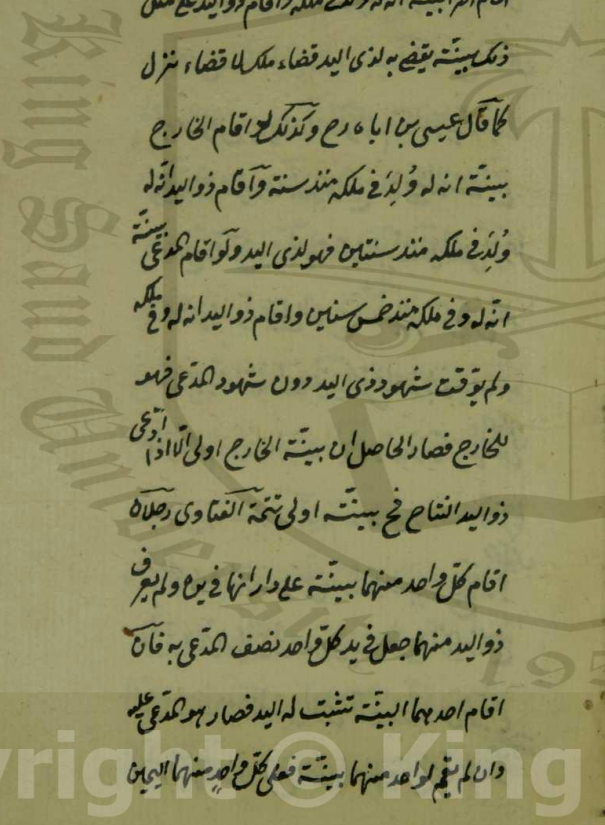 ذلك بينة يقضى به لذى اليد قضاء ملك لا قضاء منزل
كما قال عيسى بن ابان رح وكذلك لو اقام الخارج
بينّة انه له وُلِدَ فى ملكه منذ سنة وآقام ذو اليد انّه له
وُلِدَ فى ملكه منذ سنتين فهو لذى اليد ولو اقام المدّعى بينّة
انّه له وفى ملكه منذ خمس سنين واقام ذو اليد انه له وفى ملكه
ولم يوقت شهود ذى اليد دون شهود المدّعى فهو
للخارج فصار الحاصل ان بينّة الخارج اولى الّا اذا ادّعى
ذو اليد النتاج فح بينّته اولى تتمّة الفتاوى رجلان
اقام كلّ واحد منهما بينّة على دار انها فى يده ولم يعرف
ذو اليد منهما جعل فى يد كلّ واحد نصف المدّعى به فان
اقام احدهما البينّة تثبت له اليد فصار هو المدّعى عليه
وان لم يقم لواحد منهما بينّة فعلى كلّ واحدٍ منهما اليمين
King Saud University
1957
Copyright © King